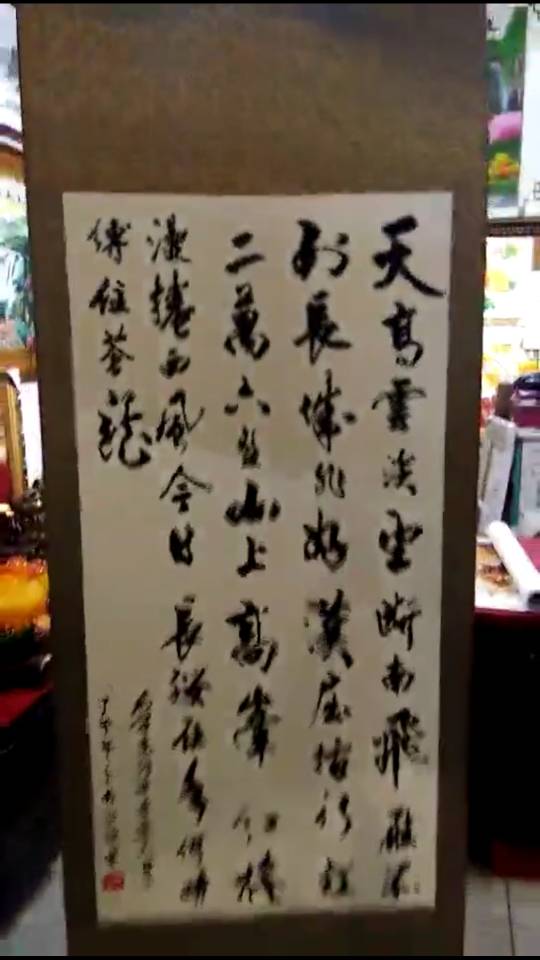 天高雲淡望断南飛雁不
到長城非好漢屈指行程
二萬六盤山上高峯红旗
漫捲西風今日長纓在手何時
縛住蒼龍